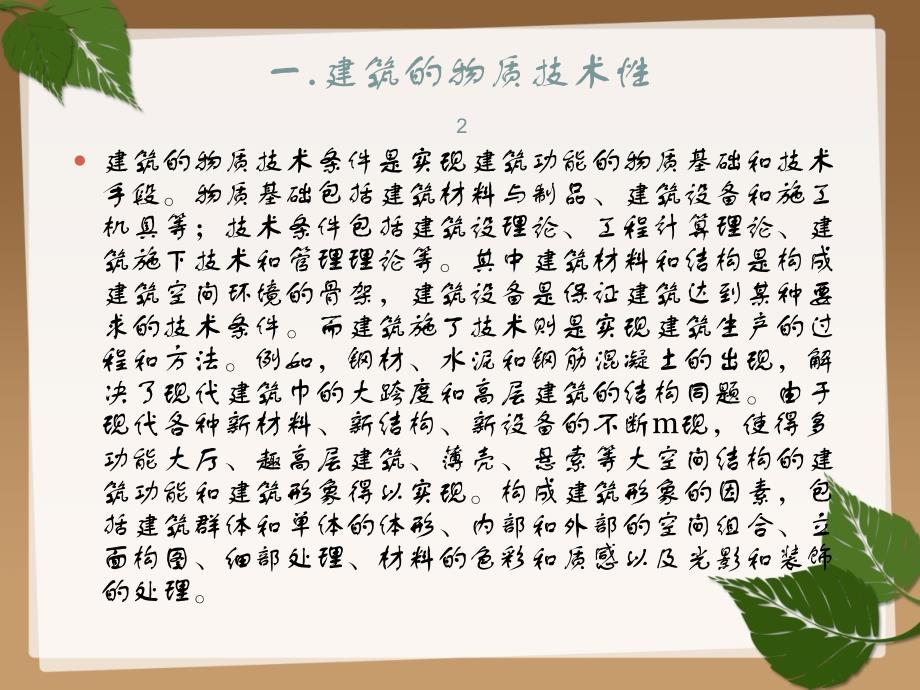 一.建筑的物质技术性
2
建筑的物质技术条件是实现建筑功能的物质基础和技术
手段。物质基础包括建筑材料与制品、建筑设备和施工
机具等；技术条件包括建筑设理论、工程计算理论、建
筑施下技术和管理理论等。其中建筑材料和结构是构成
建筑空间环境的骨架，建筑设备是保证建筑达到某种要
求的技术条件。而建筑施了技术则是实现建筑生产的过
程和方法。例如，钢材、水泥和钢筋混凝土的出现，解
决了现代建筑巾的大跨度和高层建筑的结构同题。由于
现代各种新材料、新结构、新设备的不断m现，使得多
功能大厅、趣高层建筑、薄壳、悬索等大空间结构的建
筑功能和建筑形象得以实现。构成建筑形象的因素，包
括建筑群体和单体的体形、内部和外部的空间组合、立
面构图、细部处理、材料的色彩和质感以及光影和装饰
的处理。